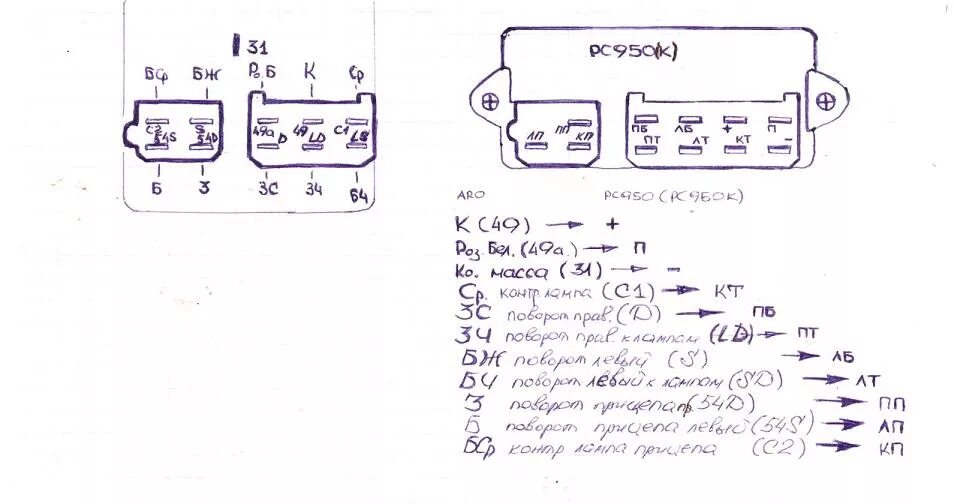 31
БЧ БЖ Ро.Б К Ср
С2 S 49а 49 С1
54S 54D D LD LS
Б З ЗС ЗЧ БЧ
РС950(К)
ЛП ПП КП
ПБ ЛБ + П
ПТ ЛТ КТ -
ARO РС950 (РС950К)
К (49) → +
Роз.Бел. (49а.) → П
Ко. масса (31) → -
Ср. контр лампа (С1) → КТ
ЗС поворот прав. (D) → ПБ
ЗЧ поворот прав. к лампам (LD) → ПТ
БЖ поворот левый (S) → ЛБ
БЧ поворот левый к лампам (SD) → ЛТ
З поворот прицепа пр. (54D) → ПП
Б поворот прицепа левый (54S) → ЛП
БСр контр лампа прицепа (С2) → КП